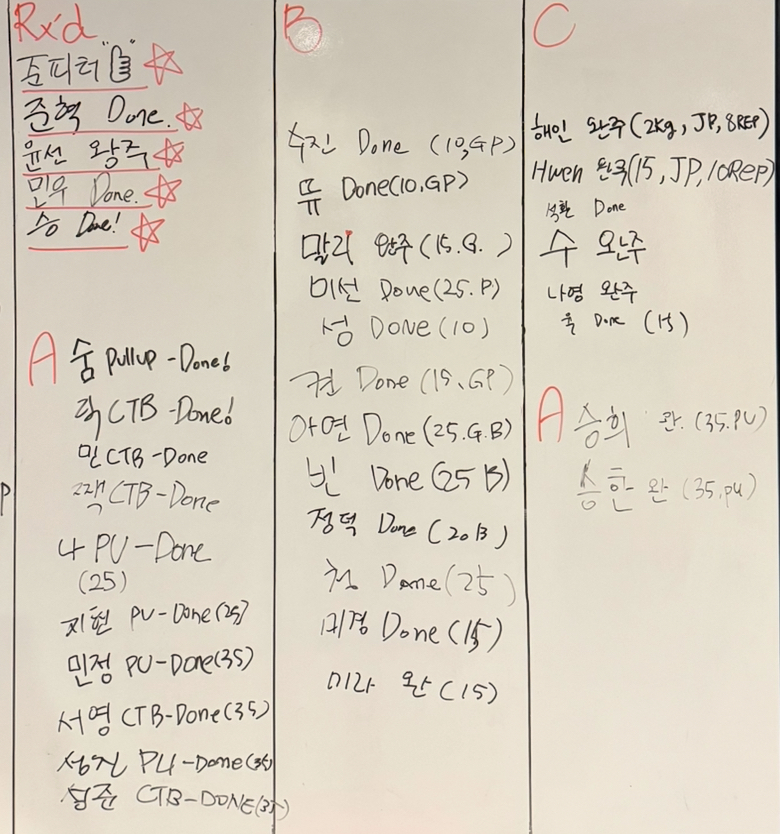 Rx'd
준피터 "👍"
준혁 Done.
윤선 왕주
민우 Done.
승 Done!
A
숨 pullup - Done!
락 CTB - Done!
민 CTB - Done
CTB - Done
나 PU - Done
(25)
지현 PU - Done (25)
민정 PU - Done (35)
서영 CTB - Done (35)
성진 PU - Done (35)
CTB - DONE (35)
B
수진 Done (10, GP)
뜌 Done (10, GP)
말리 완주 (15. G. )
미선 Done (25. P)
성 DONE (10)
Done (15, GP)
아연 Done (25.G.B)
빈 Done (25 B)
정덕 Done (20 B)
청 Done (25)
미경 Done (15)
미라 완 (15)
C
해인 완주 (2kg, JP, 8REP)
Hwen 완주 (15, JP, 10Rep)
석환 Done
수 완주
나영 완주
욱 Done (15)
A
승희 완. (35.PU)
승한 완 (35, pu)
P